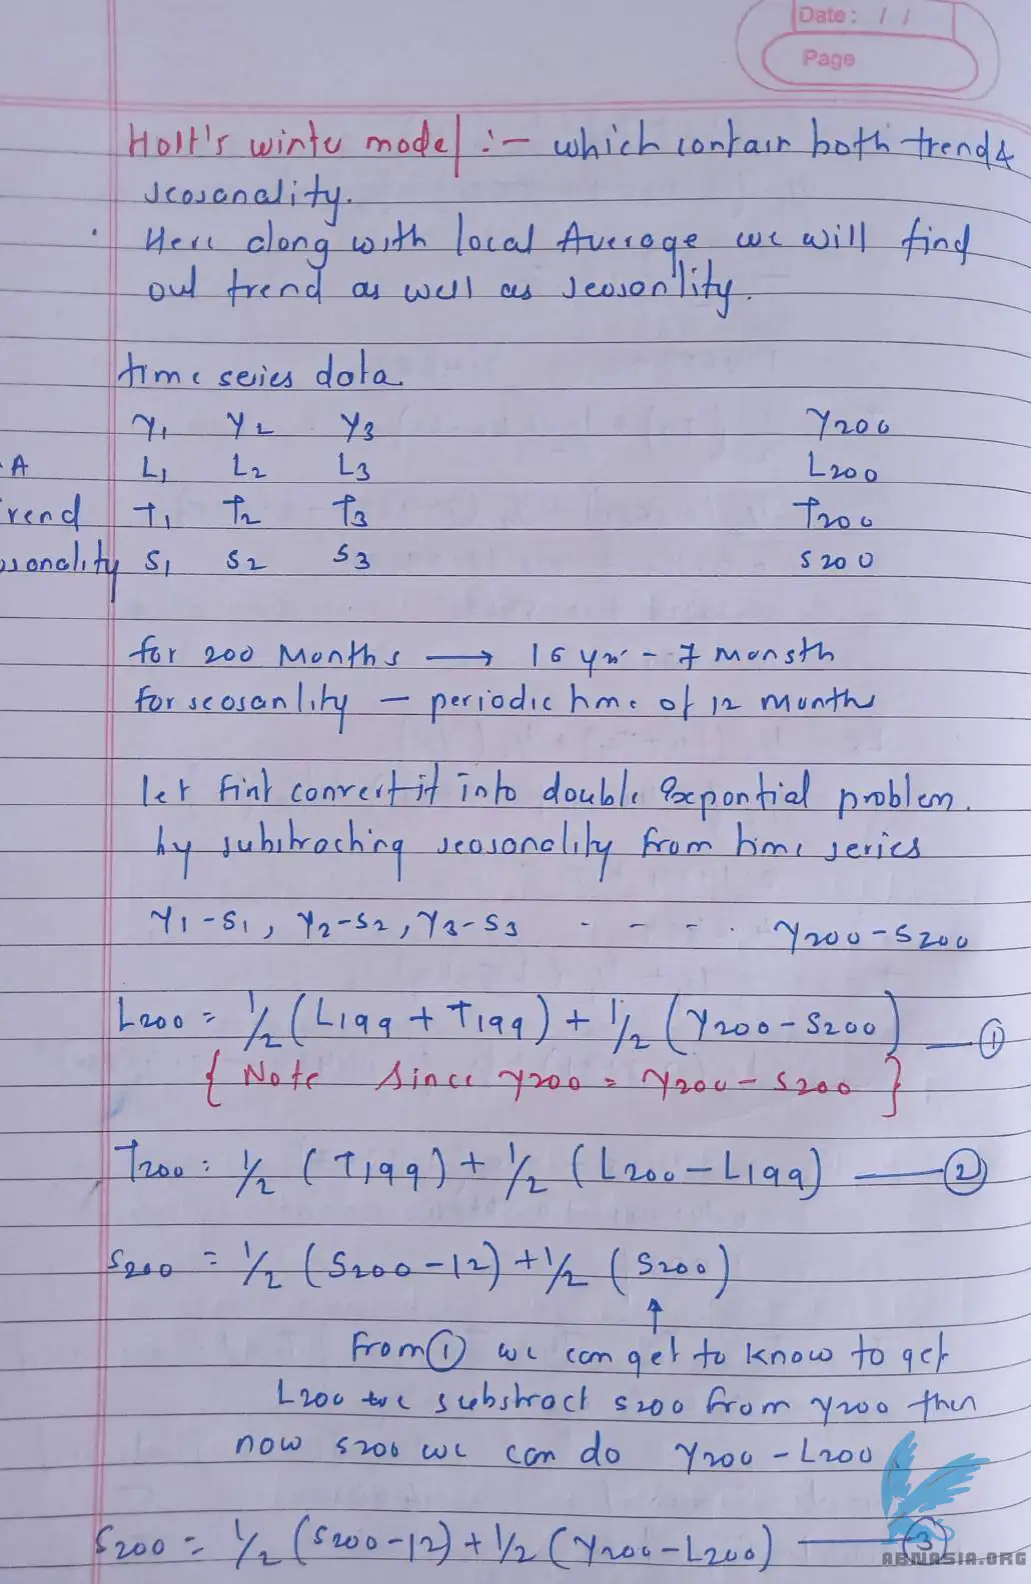 Date: / /
Page
Holt's winter model :- which contain both trend &
seasonality.
Here along with local Average we will find
out trend as well as seasonlity.
time series data
Y1 Y2 Y3 Y200
A L1 L2 L3 L200
rend T1 T2 T3 T200
sonality S1 S2 S3 S200
for 200 Months → 16 yrs - 7 monsth
for seosanlity - periodic time of 12 months
let first convert it into double Expontial problem.
by substraching seasonality from time series
Y1-S1, Y2-S2, Y3-S3 - - - . Y200-S200
L200 = 1/2 (L199 + T199) + 1/2 (Y200-S200) — ①
{ Note Since Y200 = Y200 - S200 }
T200 = 1/2 (T199) + 1/2 (L200-L199) — ②
S200 = 1/2 (S200-12) + 1/2 (S200)
↑
From ① we can get to know to get
L200 we substract S200 from Y200 then
now S200 we can do Y200 - L200
S200 = 1/2 (S200-12) + 1/2 (Y200-L200) — ③
ABNASIA.ORG